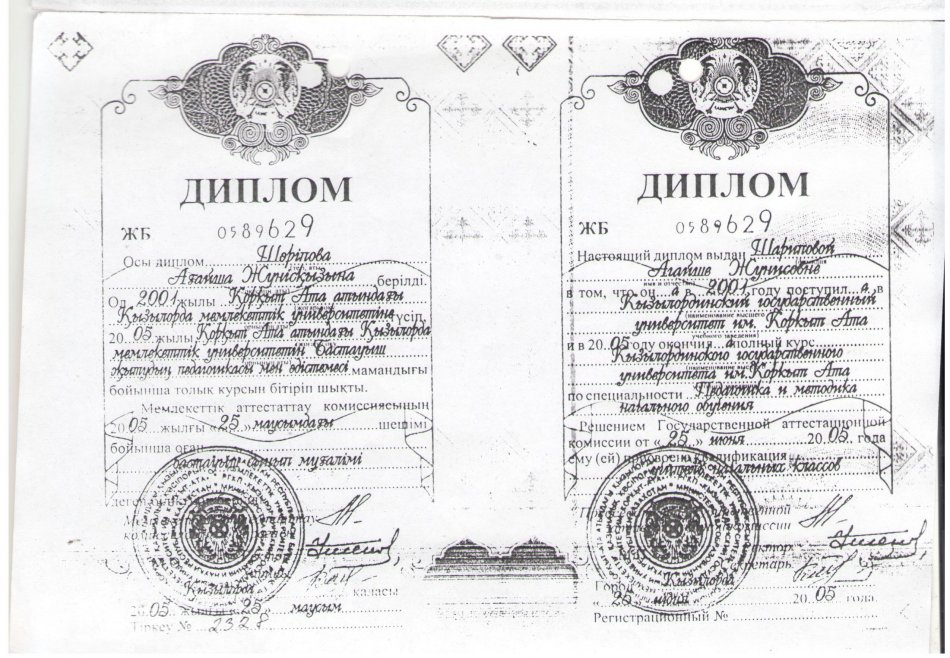 ДИПЛОМ
ЖБ 0589629
Осы диплом Шәріпова
Ағайша Жүнісқызына берілді.
Ол 2001 жылы Қорқыт Ата атындағы
Қызылорда мемлекеттік университетіне түсіп,
20 05 жылы Қорқыт Ата атындағы Қызылорда
мемлекеттік университетін Бастауыш
оқытудың педагогикасы мен әдістемесі мамандығы
бойынша толық курсын бітіріп шықты.
Мемлекеттік аттестаттау комиссиясының
20 05 жылғы « 25 » маусымдағы шешімі
бойынша оған
бастауыш сынып мұғалімі
Қызылорда қаласы
20 05 жылғы « 25 » маусым
Тіркеу № 2328
ДИПЛОМ
ЖБ 0589629
Настоящий диплом выдан Шариповой
Агайше Жунисовне
в том, что он а в 2001 году поступил а в
Кызылординский государственный
университет им. Коркыт Ата
и в 20 05 году окончил а полный курс
Кызылординского государственного
университета им. Коркыт Ата
по специальности Педагогика и методика
начального обучения
Решением Государственной аттестационной
комиссии от « 25 » июня 20 05 года
ему (ей) присвоена квалификация
учитель начальных классов
Ректор
Секретарь
Город Кызылорда
« 25 » июня 20 05 года.
Регистрационный №